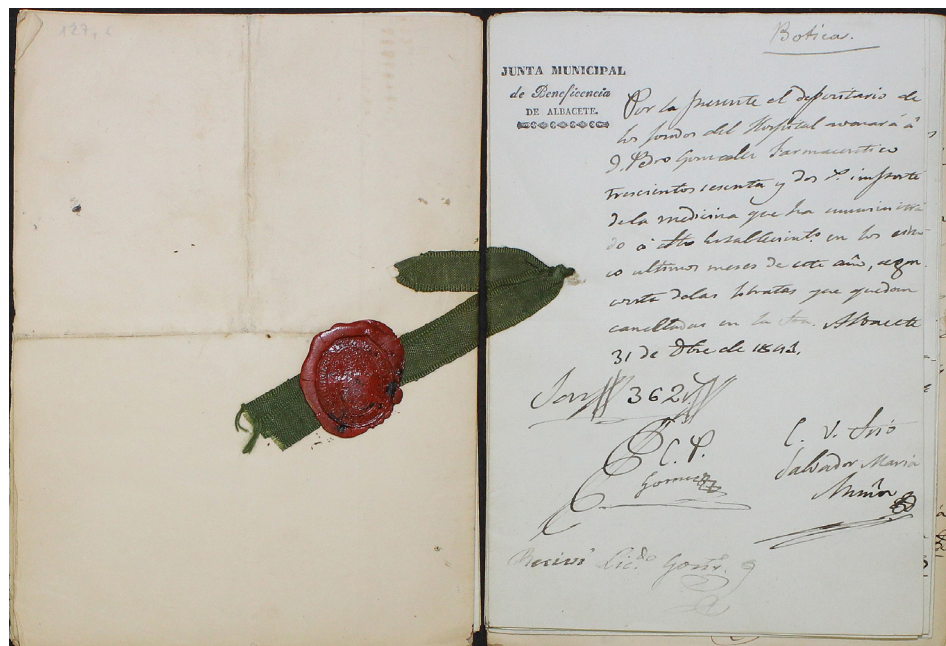 127, c
Boticas.
JUNTA MUNICIPAL
de Beneficencia
DE ALBACETE.
Por la presente el depositario de
los fondos del Hospital avonará á
D. Pedro Gonzalez Farmaceutico
trescientos sesenta y dos r.^s importe
de la medicina que ha suministra
do á dho establecimto. en los
ultimos meses de este año, segun
consta de las que quedan
en la Albacete
31 de Dbre de 184
Son 362
C. P.
Gomez
C. V. Srio
Salvador Maria
Muñoz
Recivi Lic.do Gonz.